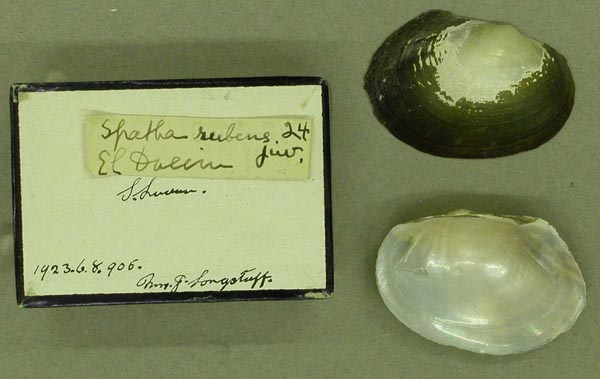 Spatha rubens. 24
El Dueim juv.
S. Sudan.
1923.6.8.906.
Mrs. J. Longstaff.